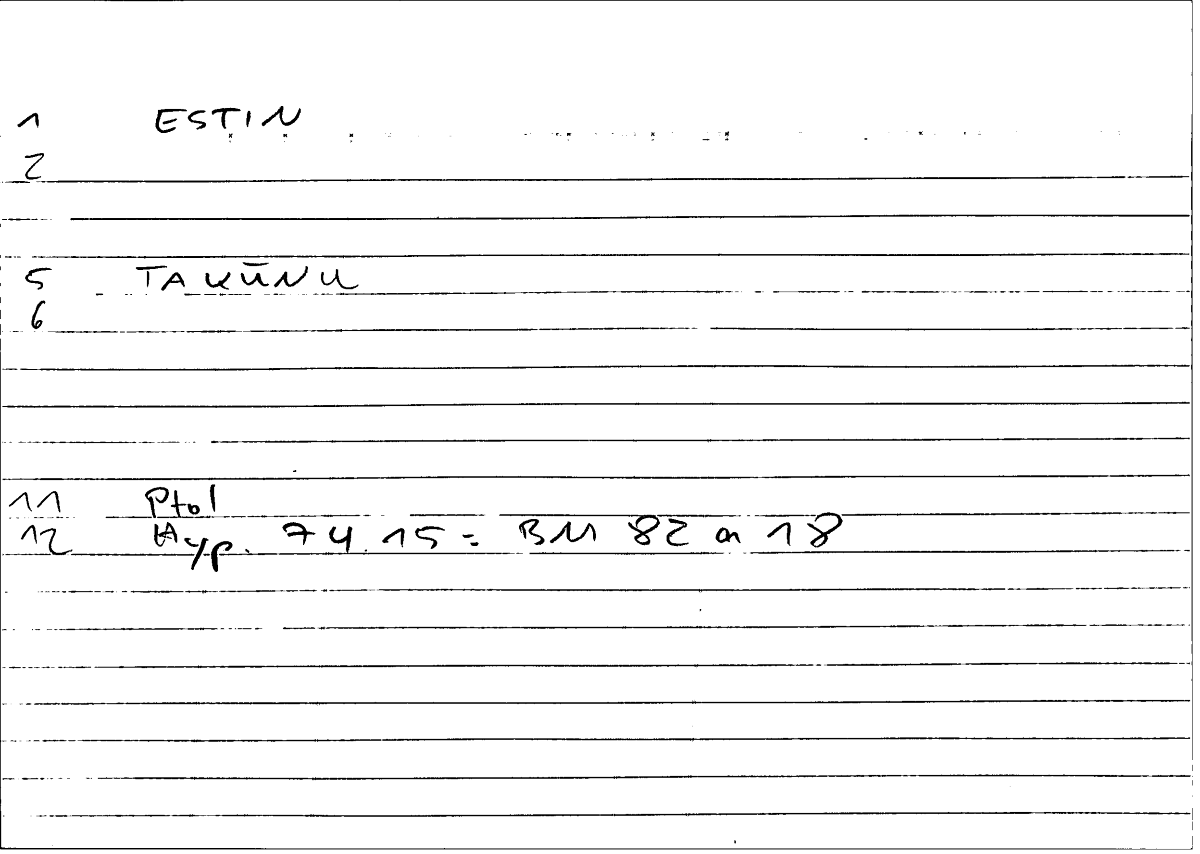 1 ESTIN
2
5 TAKŪNU
6
11 Ptol
12 Hyp. 74.15 = BM 82 a 18